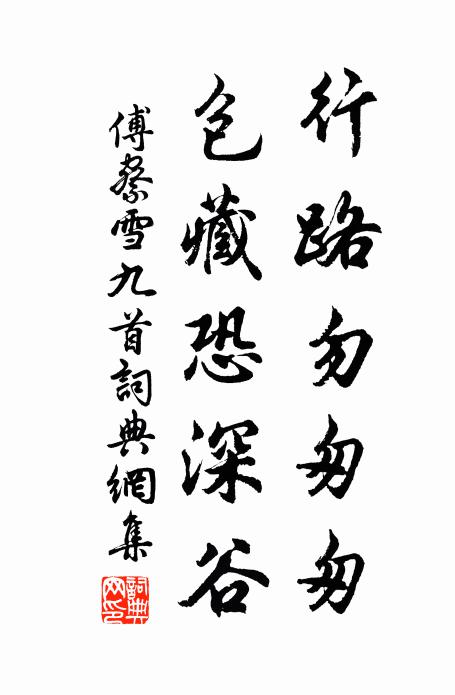 行路勿匆匆
包藏恐深谷
傅察雪九首詞典網集
詞典
网印